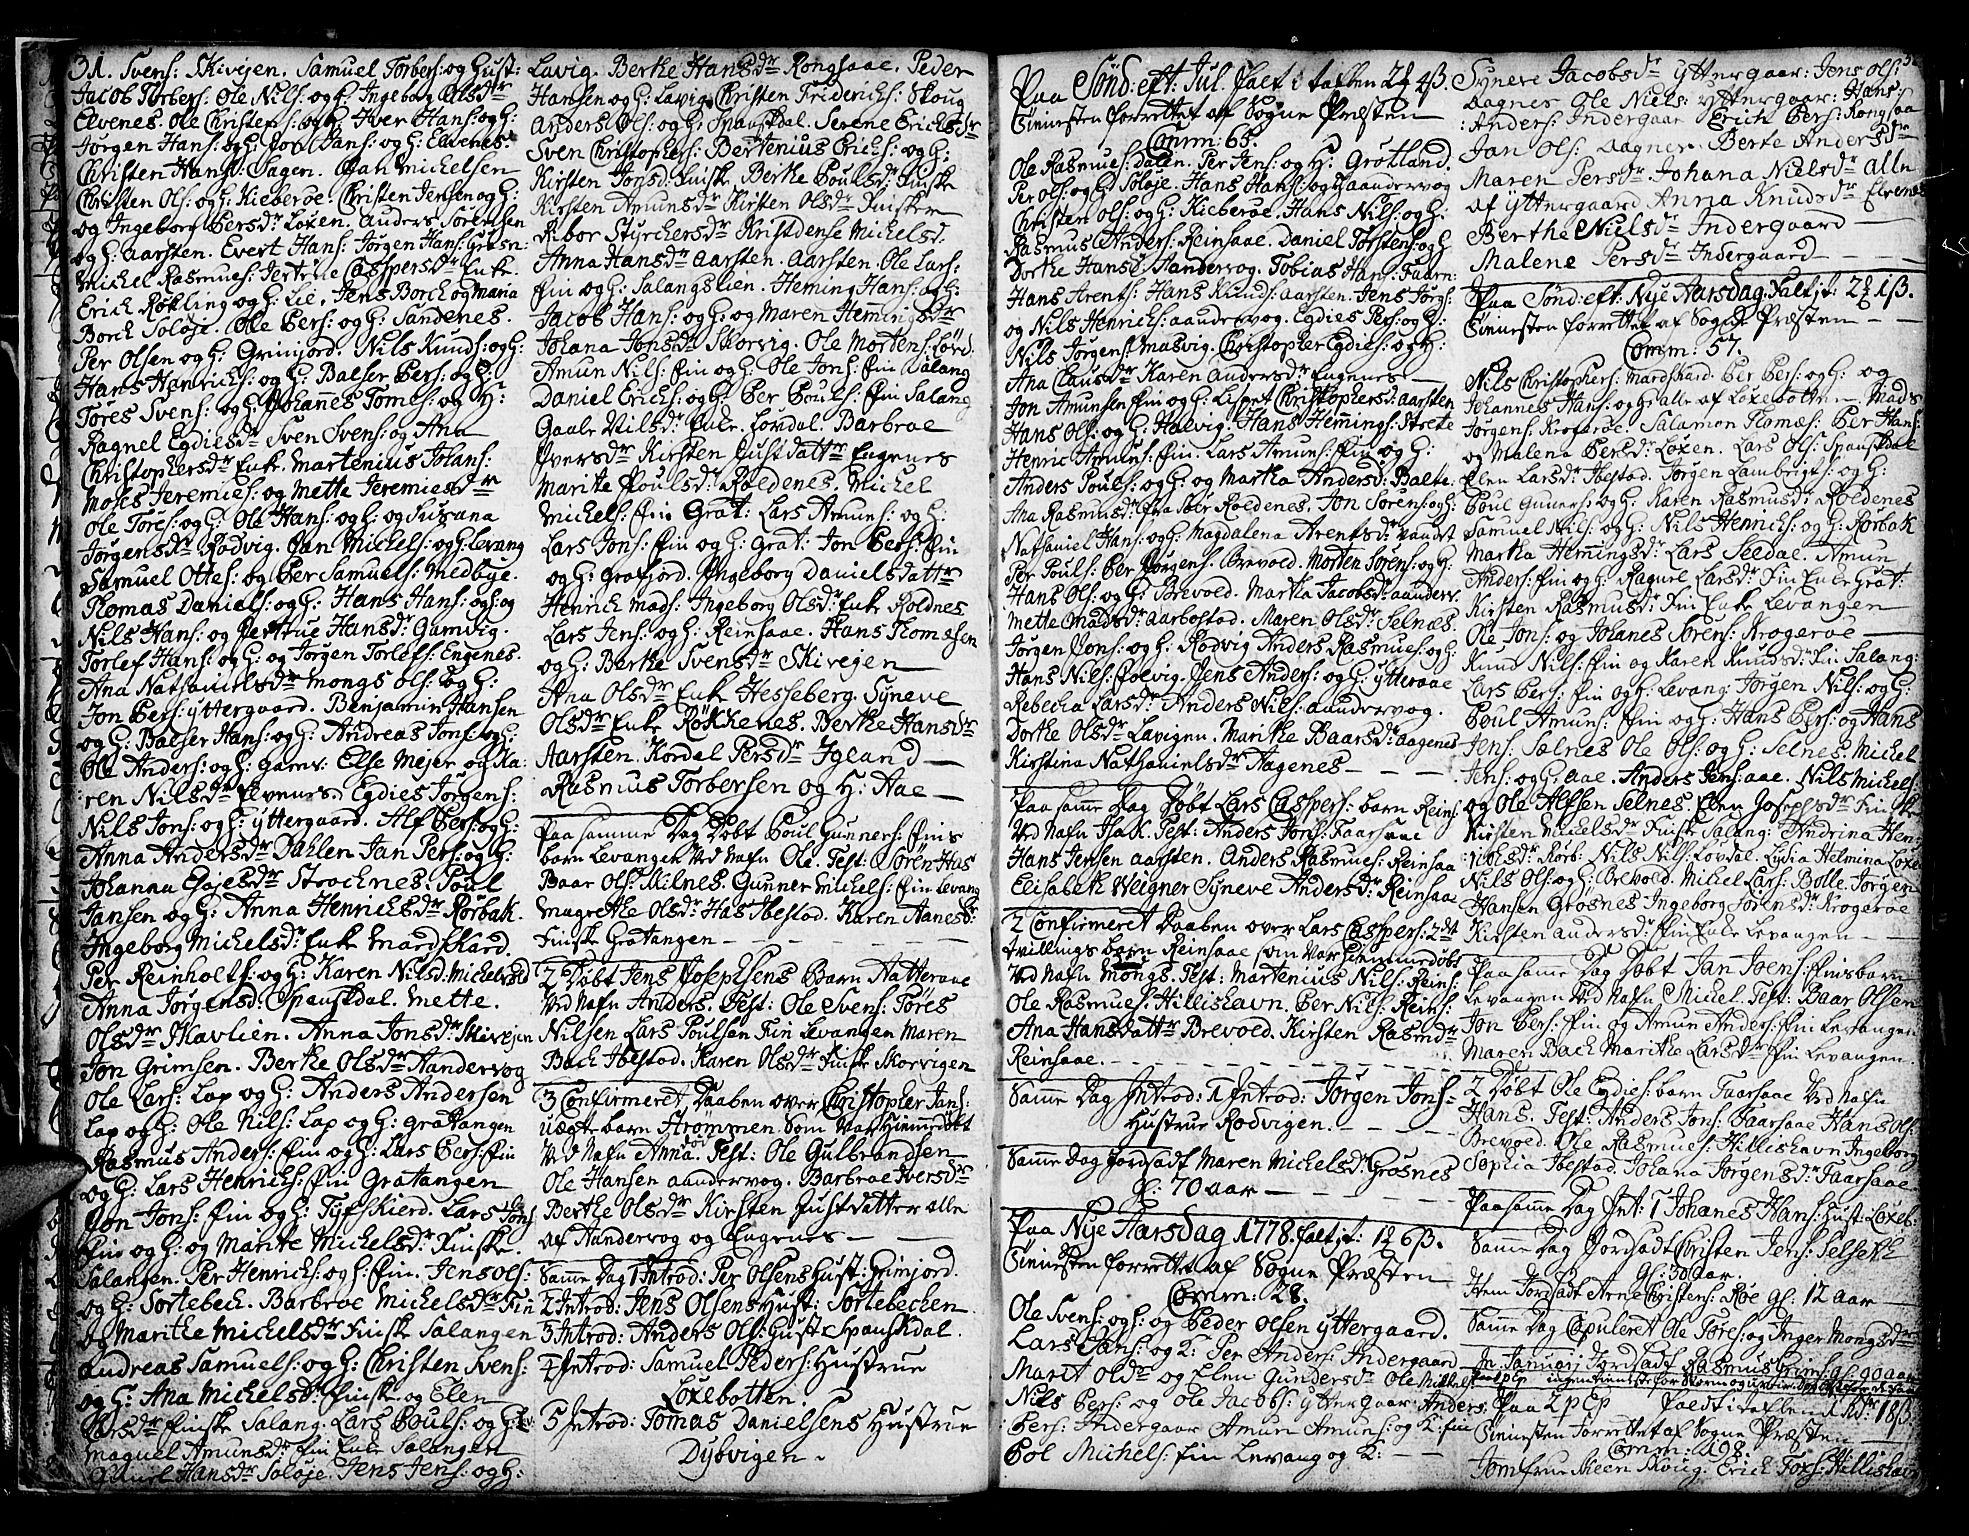 31. Svens: Skivejen. Samuel Torbers: og Hust:
Jacob Torbers: Ole Nils: og H: Ingeborg Elisdr
Elvenes. Ole Christens: og H: Iver Hans: og H:
Jørgen Hans: og H: Jon Hans: og H: Elvenes.
Christen Hans: Sagen. Jan Michelsen
Christen Ols: og H: Kieberøe. Christen Jensen og H:
og Ingeborg Persdr Løxen. Anders Sørensen
og H: Aarsten. Evert Hans: Jørgen Hans: Grøsn:
Michel Rasmus: Jertrue Caspersdr Enke.
Erick Røkling og H: Lie. Jens Borch og Maria
Borch Soløje. Ole Pers: og H: Sandenes.
Per Olsen og H: Grimjord. Nils Knuds: og H:
Hans Hanrichs: og H: Balser Pers: og H:
Tøres Svens: og H: Johannes Tomes: og H:
Ragnel Egdiesdr Sven Svens: og Ana
Christophersdr Enke. Martenius Johans:
Moses Jeremies: og Mette Jeremiesdr
Ole Tøres: og H: Ole Hans: og H: og Susana
Jørgensdr Rodvig. Jan Michels: og H: Levang
Samuel Ottes: og Per Samuels: Medbye.
Thomas Daniels: og H: Hans Hans: og H: og
Nils Hans: og Jertrue Hansdr Gamvig.
Torlef Hans: og H: og Jørgen Torlefs: Engenes.
Ana Nathanielsdr Mongs Ols: og H:
Jon Pers: Yttergaard. Benjamin Hansen
og H: Balser Hans: og H: Andreas Jons: og H:
Ole Anders: og H: Gamv: Else Mejer og Ka:
:ren Nilsdr Elvenes. Egdies Jørgens:
Nils Jons: og H: Yttergaard. Alf Pers: og H:
Anna Andersdr Dahlen Jan Pers: og H:
Johanna Gajesdr Strochnes. Poul
Jansen og H: Anna Henrichsdr Rørbak.
Ingeborg Michelsdr Enke Mardskard.
Per Reinholts: og H: Karen Nilsd: Michelsdal
Anna Jørgensd: Spanskdal. Mette.
Olsdr Skavlien. Anna Jonsdr Skivejen
Jon Grimsen. Berthe Olsdr Aandervog
Ole Lars: Lap og H: Anders Andersen
Lap og H: Ole Nils: Lap og H: Gratangen
Rasmus Anders: Fin og H: Lars Pers: Fin
og H: Lars Henrichs: Fin Gratangen
Jon Jons: Fin og H: Tyfskierd. Lars Jons
Fin og H: og Marite Michelsd: Finske.
Salangen. Per Henrichs: og H: Fin. Jens Ols:
og H: Sortebech. Barbroe Michelsdr Fin
og Marithe Michelsdr Finske Salangen
Andreas Samuels: og H: Christen Svens:
og H: Ana Michelsd: Finsk og Elen
Finske Salang: Lars Pouls: og H:
Maguel Amunsdr Fin Enke Salangen
Gunil Hansdr Soløje. Jens Jens: og H:
Lavig. Berthe Hansdr Rongsaae. Peder
Hansen og H: Lavig. Christen Friderichs: Skoug
Anders Ols: og H: Spanskdal. Serene Ericksdr
Sven Christophers: Bertenius Erichs: og H:
Kirsten Jonsd: Finske Berthe Poulsd: Finske
Kirsten Amunsdr Kirsten Olsdr Finsker
Ribor Styrchersdr Kristdense Michelsd:
Anna Hansdr Aarsten. Aarsten. Ole Lars:
Fin og H: Salangslien. Heming Hans: og H:
Jacob Hans: og H: og Maren Hemingsdr
Johana Jonsdr Skorvig. Ole Mortens: Lørd.
Amun Nils: Fin og H: Ole Jons: Fin Salang
Daniel Erichs: og H: Per Pouls: Fin Salang
Gaale Nilsdr Enke. Løvdal. Barbroe
Iversdr Kirsten Justdattr Engenes
Marite Poulsdr Roldenes. Michel
Michels: Fin Grat: Lars Amuns: og H:
Lars Jons: Fin og H: Grat: Jon Pers: Fin
og H: Grafjord. Ingeborg Danielsdattr
Henrich Mads: Ingeborg Olsdr Enke Roldnes
Lars Jens: og H: Reinsaae. Hans Thomesen
og H: Berthe Svensdr Skivejen
Ana Olsdr Enke Hesseberg. Syneve
Olsdr Enke Røkkenes. Berthe Hansdr
Aarsten. Kordel Persdr Igland —
Rasmus Torbersen og H: Aae —
Paa samme Dag Døbt Poul Gunners: Fins
barn Levangen Ved Nafn Ole. Test: Søren Has
Baar Ols: Milnes. Gunner Michels: Fin Levang
Magrethe Olsdr Has Ibestad. Karen Hanesd:
Finske Gratangen —
2 Døbt Jens Josephsens Barn Hatterøe
Ved Nafn Anders. Test: Ole Svens: Tøres
Nilsen Lars Poulsen Fin Levangen Maren
Bach Ibestad. Karen Olsdr Finske Skorvigen
3 Confirmeret Daaben over Christopher Jans:
uægte barn Strømmen som Var Hiemmedøbt
Ved Nafn Anna. Test: Ole Gulbrandsen
Ole Hansen Aandervog. Barbroe Iversdr
Berthe Olsdr Kirsten Justdatter alle
af Aandervog og Engenes —
Samme Dag 1 Introd: Per Olsens Hust: Grimjord.
2 Introd: Jens Olsens Hust: Sortebechen.
3 Introd: Anders Ols: Hust: Spanskdal.
4 Introd: Samuel Peders: Hustrue
Løxebotten.
5 Introd: Tomas Danielsens Hustrue
Dybvigen.
Paa Sønd: eft: Jul. faldt i taflen 2 4ß.
Tienesten forrettet af Sogne Præsten
Comm: 65.
Ole Rasmus: Dalen. Per Jens: og H: Grøtland.
Per Ols: og H: Soløje. Hans Hans: og H: Aandervog
Christen Ols: og H: Kieberøe. Hans Nils: og H:
Rasmus Anders: Reinsaae. Daniel Torstens: og H
Dorthe Hansd: Aandervog. Tobias Hans: Faarn:
Hans Arents: Hans Knuds: Aarsten. Jens Jørgs:
og Nils Henrichs: Aandervog. Egdies Pers: og H:
Nils Jørgens: Masvig. Christopher Egdies: og H:
Ana Clausdr Karen Andersdr Engenes —
Jon Amunsen Fin og H: Lisbet Christophersdr Aarsten
Hans Ols: og H: Halvig. Hans Hemings: Strete
Henric Amuns: Fin. Lars Amuns: Fin og H:
Anders Pouls: og H: og Martha Andersd: Balte.
Ana Rasmusdr fra Søer Roldenes. Jon Søren: og H:
Nathaniel Hans: og H: Magdalena Arentsdr Vandet
Per Pouls: Per Jørgens: Brevold. Morten Sørens: og H:
Hans Ols: og H: Brevold. Martha Jacobsdr Aanderv.
Mette Madsdr Aarbostad. Maren Olsdr Selnæs.
Jørgen Jons: og H: Rodvig Anders Rasmus: og H:
Hans Nils: Foevig. Jens Anders: og H: Ytteraae
Rebecha Larsdr Anders Nils: Aandervog.
Dorthe Olsdr Lavigen. Marithe Baarsdr Aagenes
Kirstina Nathanielsdr Aagenes —
Paa samme Dag Døbt Lars Caspers: barn Reins:
Ved Nafn Isak. Test: Anders Jons: Faarsaae
Hans Jensen Aarsten. Anders Rasmus: Reinsaa
Elisabeth Weigner Syneve Andersdr Reinsaae
2 Confirmeret Daaben over Lars Caspers: 2det
tvillings barn Reinsaae som Var Hiemmedøbt
Ved Nafn Mongs. Test: Martenius Nils: Reins:
Ole Rasmus: Hillishavn. Per Nils: Reins:
Ana Hansdattr Brevold. Kirsten Rasmdr
Reinsaae.
Samme Dag Introd: 1 Introd: Jørgen Jons:
Hustrue Rodvigen.
Samme Dag Jordsadt Maren Michelsdr Grøsnes
gl: 70 aar —
Paa Nye Aarsdag 1778. faldt it: 1 6ß.
Tienesten forrettet af Sogne Præsten
Comm: 28.
Ole Svens: og H: og Peder Olsen Yttergaard.
Lars Jans: og K: Per Anders: Indergaard
Maret Oldr og Elen Gundersdr Ole Mikkels:
Nils Pers: og Ole Jacobs: Yttergaar: Anders
: Pers: Indergaar Amun Amuns: og K: Fin
Pol Michels: Fin Levang og K: —
Synere Jacobsdr Yttergaar: Jens Ols:
Aagnes Ole Niels: Yttergaar: Hans:
: Anders: Indergaar Erich Pers: Rongsaa
Jan Ols: Aagnes. Berthe Andersdr
Maren Persdr Johana Nielsdr alle
af Yttergaard Anna Knudsdr Elvenes
Berthe Nielsdr Indergaard —
Malene Persdr Indergaard —
Paa Sønd: eft: Nye Aarsdag. Faldt it: 2 1ß.
Tienesten forrettet af Sogne Præsten —
Comm: 57.
Nils Christophers: Mardskard. Per Pers: og H: og
Johannes Hans: og H: alle af Løxebotten. Mads
Jørgens: Krogerøe. Salamon Thomæs: Per Hans:
og Malena Persdr Løxen. Lars Ols: Spanskdal
Elen Larsdr Ibestad. Jørgen Lambergts: og H:
Poul Guners: og H: Karen Rasmusdr Roldenes
Samuel Nils: og H: Nils Henrichs: og H: Rørbak
Martha Hemingsdr Lars Seedal. Amun
Anders: Fin og H: Raguel Larsdr Fin Enke Grat:
Kirsten Rasmusdr Fin Enke Levangen
Ole Jons: og Johanes Sørens: Krogerøe —
Knud Nils: Fin og Karen Knudsdr Fin Salang:
Lars Pers: Fin og H: Levang: Jørgen Nils: og H:
Poul Amuns: Fin og H: Hans Pers: og Hans
Jens: Sælnes Ole Ols: og H: Selnes. Michel
Jens: og H: Aae. Anders Jens: Aae. Nils Michels:
og Ole Alfsen Selnes. Elen Josephsdr Finske
Kirsten Michelsdr Finske Salang: Andrina Hen:
:richsdr Rørb: Nils Nils: Løvdal. Lydia Helmina Løxen
Nils Ols: og H: Brevold. Michel Lars: Bolle. Jørgen
Hansen Grøsnes Ingeborg Sørensdr Krogerøe
Kirsten Andersdr Fin Enke Levangen —
Paa same Dag Døbt Jan Joens: Fins barn
Levangen Ved Nafn Michel. Test: Baar Olsen
Jon Pers: Fin og Amun Anders: Fin Levangen
Maren Bach Marithe Larsdr Fin Levangen.
2 Døbt Ole Egdies: barn Faarsaae Ved Nafn
Hans. Test: Anders Jons: Faarsaae Hans Ols:
Brevold. Ole Rasmus: Hillishavn Ingeborg
Sophia Ibestad. Johana Jørgensdr Faarsaae
Paa samme Dag Int: 1 Johanes Hans: Hust: Løxeb:
Samme Dag Jordsadt Christen Jens: Selseth
gl: 30 aar.
Item Jordsadt Arne Christens: Roe gl: 12 aar
Samme Dag Copuleret Ole Tøres: og Inger Mongsdr
In Januarj Jordsadt Rasmus Grims: gl: 90 aar
Paa 2 p Ep Faldt i taflen 1 Rdr 18ß.
Tienesten Forrettet af Sogne Præsten
Comm: 198.
Jomfrue Steen Skoug. Erich Foxs: Hillishavn